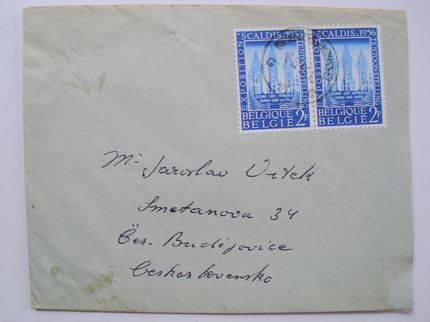 EXPOSITION "SCALDIS" 1956 TENTOONSTELLING
BELGIQUE
BELGIË 2F
EXPOSITION "SCALDIS" 1956 TENTOONSTELLING
BELGIQUE
BELGIË 2F
Mr Jaroslav Vitek
Smetanova 34
Čes. Budějovice
Ceskoslovensko